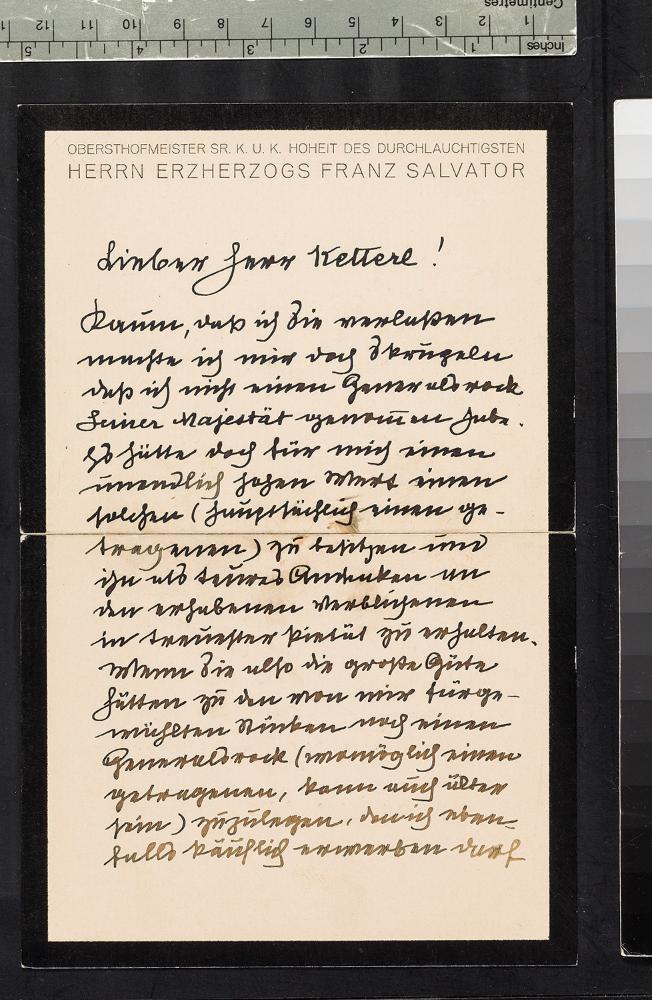 Centimetres
1 2 3 4 5 6 7 8 9 10 11 12
Inches 1 2 3 4 5
OBERSTHOFMEISTER SR. K. U. K. HOHEIT DES DURCHLAUCHTIGSTEN
HERRN ERZHERZOGS FRANZ SALVATOR
Lieber Herr Ketterl!
Kaum, daß ich Sie verlaßen
machte ich mir doch Skrupeln
daß ich nicht einen Generalsrock
Seiner Majestät genom̅en habe.
Es hätte doch für mich einen
unendlich hohen Wert einen
solchen (hauptsächlich einen ge-
tragenen) zu besitzen und
ihn als teures Andenken an
den erhabenen Verblichenen
in treuester Pietät zu erhalten.
Wenn Sie also die große Güte
hätten zu den von mir
wählten noch einen
Generalsrock (womöglich einen
getragenen, kann auch älter
sein) zuzulegen, den ich eben-
falls käuflich erwerben darf